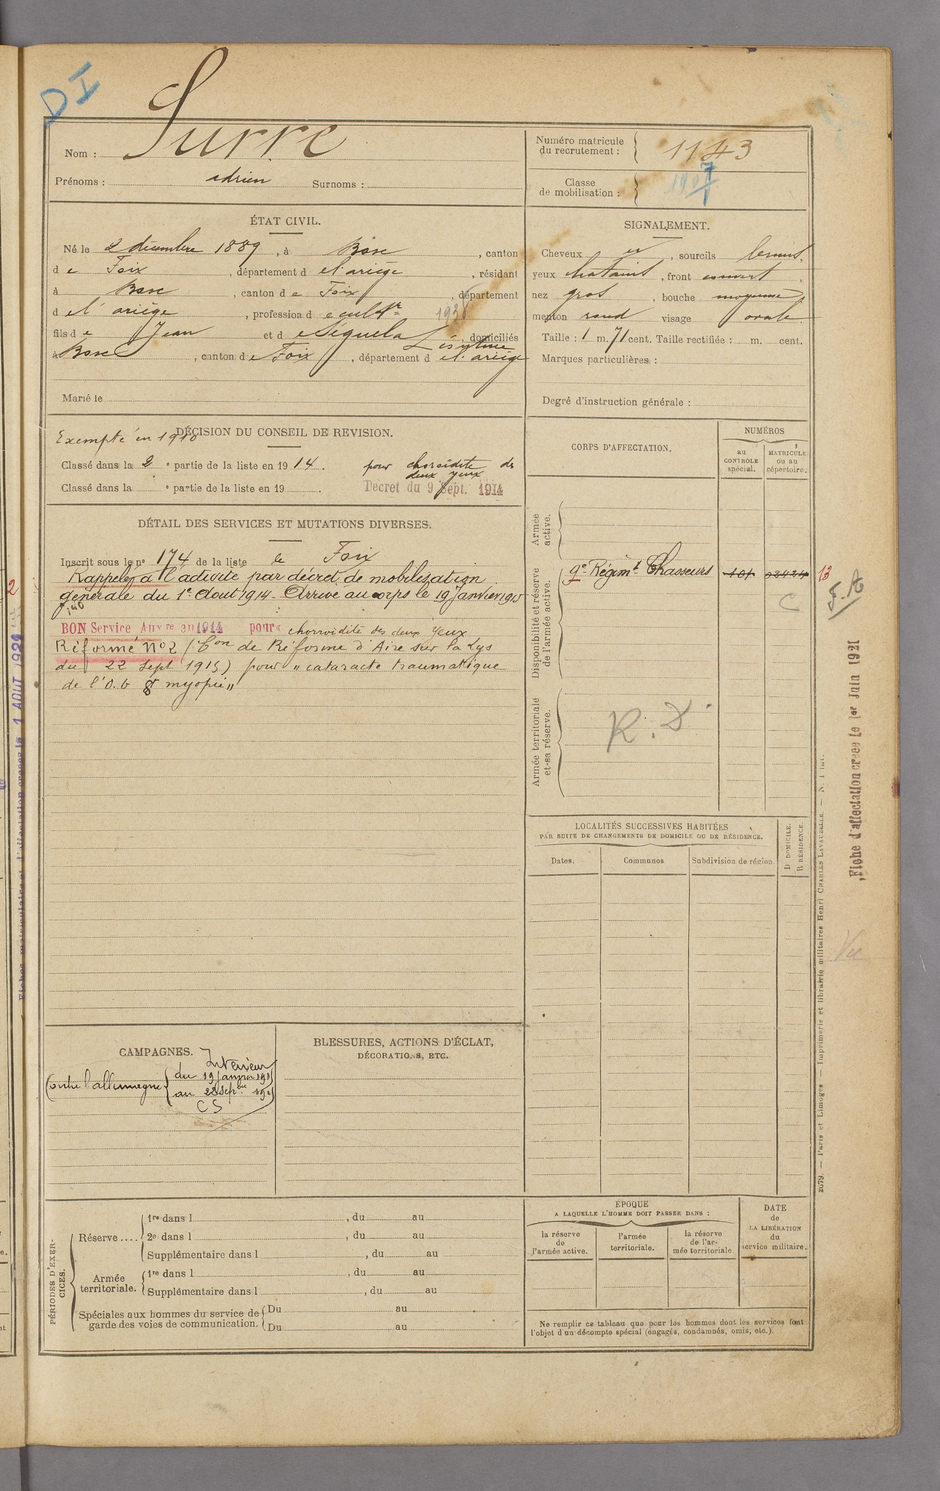 DI
Nom : Surre
Prénoms : adrien Surnoms :
Numéro matricule du recrutement : 1143
Classe de mobilisation : 1907
ÉTAT CIVIL.
Né le 2 décembre 1889, à Bosc, canton
de Foix, département d el'ariège, résidant
à Bosc, canton de Foix, département
d el'ariège, profession d e cultr
193
fils de Jean et de Séguela Lésymne, domiciliés
à Bosc, canton de Foix, département d el'ariège
Marié le
SIGNALEMENT.
Cheveux, sourcils bruns,
yeux chatains, front couvert,
nez gros, bouche moyenne,
menton rond visage ovale.
Taille : 1 m. 71 cent. Taille rectifiée : m. cent.
Marques particulières :
Degré d'instruction générale :
DÉCISION DU CONSEIL DE REVISION.
Exempté en 1910
Classé dans la 2e partie de la liste en 1914. pour choroidite des deux yeux
Classé dans la e partie de la liste en 19 . Décret du 9 Sept. 1914
DÉTAIL DES SERVICES ET MUTATIONS DIVERSES.
Inscrit sous le no 174 de la liste de Foix
Rappelé à l'activité par décret de mobilisation
générale du 1e Aout 1914 - Arrivé au corps le 19 janvier 1915
BON Service Auxre en 1914 pour choroidité des deux yeux
Réformé No 2 (Con de Réforme d'Aire sur la Lys
du 22 Sept 1915) pour "cataracte traumatique
de l'O.G et myopie"
CORPS D'AFFECTATION.
NUMÉROS
AU CONTROLE spécial.
MATRICULE OU AU répertoire.
Armée active.
Disponibilité et réserve de l'armée active.
9e Régimt Chasseurs 101 13
C
F.A
Armée territoriale et sa réserve.
R. D.
Fiche d'affectation créée le 1er Juin 1921
LOCALITÉS SUCCESSIVES HABITÉES
PAR SUITE DE CHANGEMENTS DE DOMICILE OU DE RÉSIDENCE.
Dates.
Communes
Subdivision de région.
D. DOMICILE.
R. RÉSIDENCE.
Vu
CAMPAGNES.
Intérieur
Contre l'allemagne du 19 janvier 1915
au 22 Sepbre 1915
CS
BLESSURES, ACTIONS D'ÉCLAT,
DÉCORATIONS, ETC.
PÉRIODES D'EXERCICES.
Réserve .... 1re dans l , du au
2e dans l , du au
Supplémentaire dans l , du au
Armée territoriale. 1re dans l , du au
Supplémentaire dans l , du au
Spéciales aux hommes du service de garde des voies de communication. Du au
Du au
ÉPOQUE
A LAQUELLE L'HOMME DOIT PASSER DANS :
la réserve de l'armée active.
l'armée territoriale.
la réserve de l'armée territoriale
DATE de LA LIBÉRATION du service militaire.
Ne remplir ce tableau que pour les hommes dont les services font
l'objet d'un décompte spécial (engagés, condamnés, omis, etc.).
2079. — Paris et Limoges. — Imprimerie et librairie militaires Henri CHARLES-LAVAUZELLE.